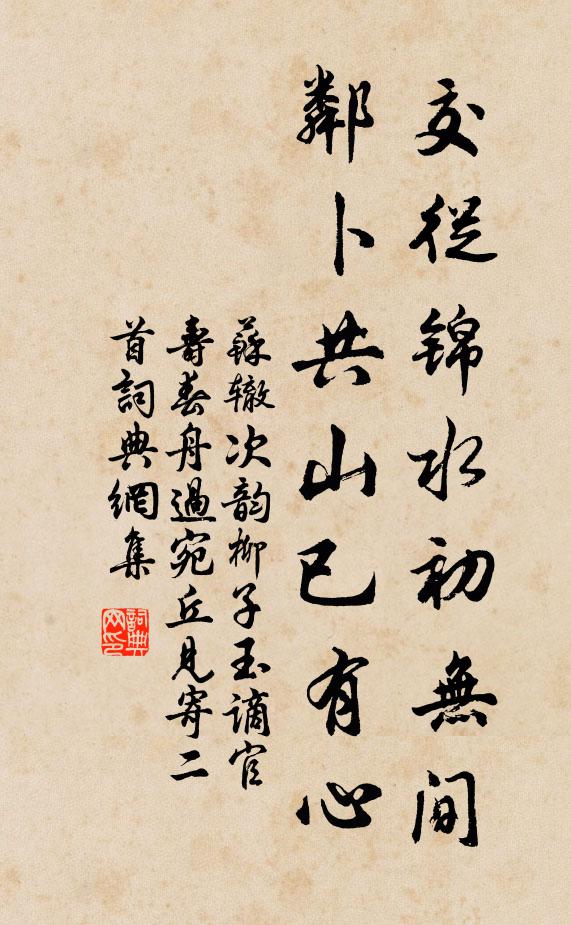 交從錦水初無間
鄰卜共山已有心
蘇辙次韵柳子玉謫官
壽春舟過宛丘見寄二
首詞典網集
詞典
网印